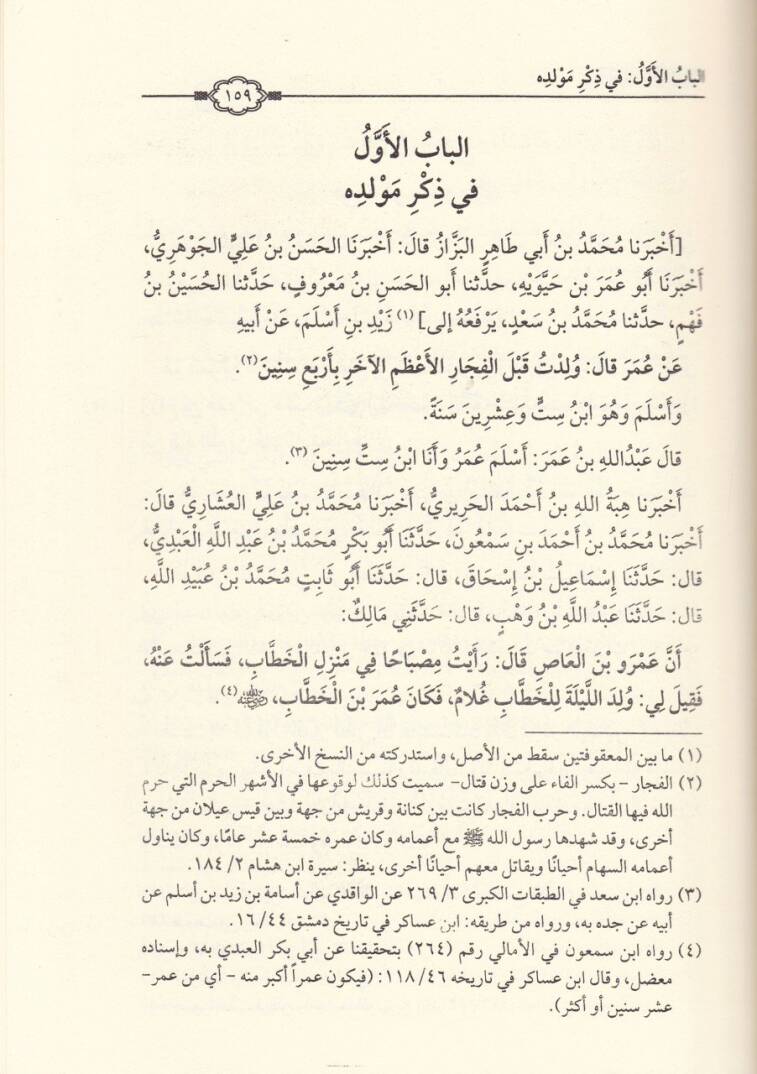 الباب الأَوَّلُ: في ذِكْرِ مَوْلدِه
١٥٩
البابُ الأَوَّلُ
في ذِكْرِ مَوْلدِه
[أَخْبَرَنا مُحَمَّدُ بنُ أَبي طَاهِرٍ البَزَّازُ قالَ: أَخْبَرَنَا الحَسَنُ بنُ عَلِيٍّ الجَوْهَرِيُّ،
أَخْبَرَنَا أَبُو عُمَرَ بْن حَيَّوَيْهِ، حدَّثنا أَبو الحَسَنِ بنُ مَعْرُوفٍ، حَدَّثنا الحُسَيْنُ بنُ
فَهْمٍ، حدَّثنا مُحَمَّدُ بنُ سَعْدٍ، يَرْفَعُهُ إلى] (١) زَيْدِ بنِ أَسْلَمَ، عَنْ أَبيهِ
عَنْ عُمَرَ قالَ: وُلِدْتُ قَبْلَ الْفِجَارِ الأَعْظَمِ الآخَرِ بِأَرْبَعِ سِنِينَ(٢).
وَأَسْلَمَ وَهُوَ ابْنُ سِتٍّ وَعِشْرِينَ سَنَةً.
قالَ عَبْدُاللهِ بنُ عُمَرَ: أَسْلَمَ عُمَرُ وَأَنا ابْنُ سِتِّ سِنِينَ (٣).
أَخْبَرَنا هِبَةُ اللهِ بنُ أَحْمَدَ الحَرِيريُّ، أَخْبَرَنا مُحَمَّدُ بنُ عَلِيٍّ العُشَارِيُّ قالَ:
أَخْبَرَنا مُحَمَّدُ بنُ أَحْمَدَ بنِ سَمْعُونَ، حَدَّثَنَا أَبُو بَكْرٍ مُحَمَّدُ بْنُ عَبْدِ اللَّهِ الْعَبْدِيُّ،
قال: حَدَّثَنَا إِسْمَاعِيلُ بْنُ إِسْحَاقَ، قال: حَدَّثَنَا أَبُو ثَابِتٍ مُحَمَّدُ بْنُ عُبَيْدِ اللَّهِ،
قال: حَدَّثَنَا عَبْدُ اللَّهِ بْنُ وَهْبٍ، قال: حَدَّثَنِي مَالِكٌ:
أَنَّ عَمْرَو بْنَ الْعَاصِ قَالَ: رَأَيْتُ مِصْبَاحًا فِي مَنْزِلِ الْخَطَّابِ، فَسَأَلْتُ عَنْهُ،
فَقِيلَ لِي: وُلِدَ اللَّيْلَةَ لِلْخَطَّابِ غُلَامٌ، فَكَانَ عُمَرَ بْنَ الْخَطَّابِ، رضي الله عنه(٤).
(١) ما بين المعقوفتين سقط من الأصل، واستدركته من النسخ الأخرى.
(٢) الفجار - بكسر الفاء على وزن قتال- سميت كذلك لوقوعها في الأشهر الحرم التي حرم
الله فيها القتال. وحرب الفجار كانت بين كنانة وقريش من جهة وبين قيس عيلان من جهة
أخرى، وقد شهدها رسول الله ﷺ مع أعمامه وكان عمره خمسة عشر عامًا، وكان يناول
أعمامه السهام أحيانًا ويقاتل معهم أحيانًا أخرى، ينظر: سيرة ابن هشام ٢/ ١٨٤.
(٣) رواه ابن سعد في الطبقات الكبرى ٣/ ٢٦٩ عن الواقدي عن أسامة بن زيد بن أسلم عن
أبيه عن جده به، ورواه من طريقه: ابن عساكر في تاريخ دمشق ٤٤/ ١٦.
(٤) رواه ابن سمعون في الأمالي رقم (٢٦٤) بتحقيقنا عن أبي بكر العبدي به، وإسناده
معضل، وقال ابن عساكر في تاريخه ٤٦/ ١١٨: (فيكون عمراً أكبر منه - أي من عمر-
عشر سنين أو أكثر).